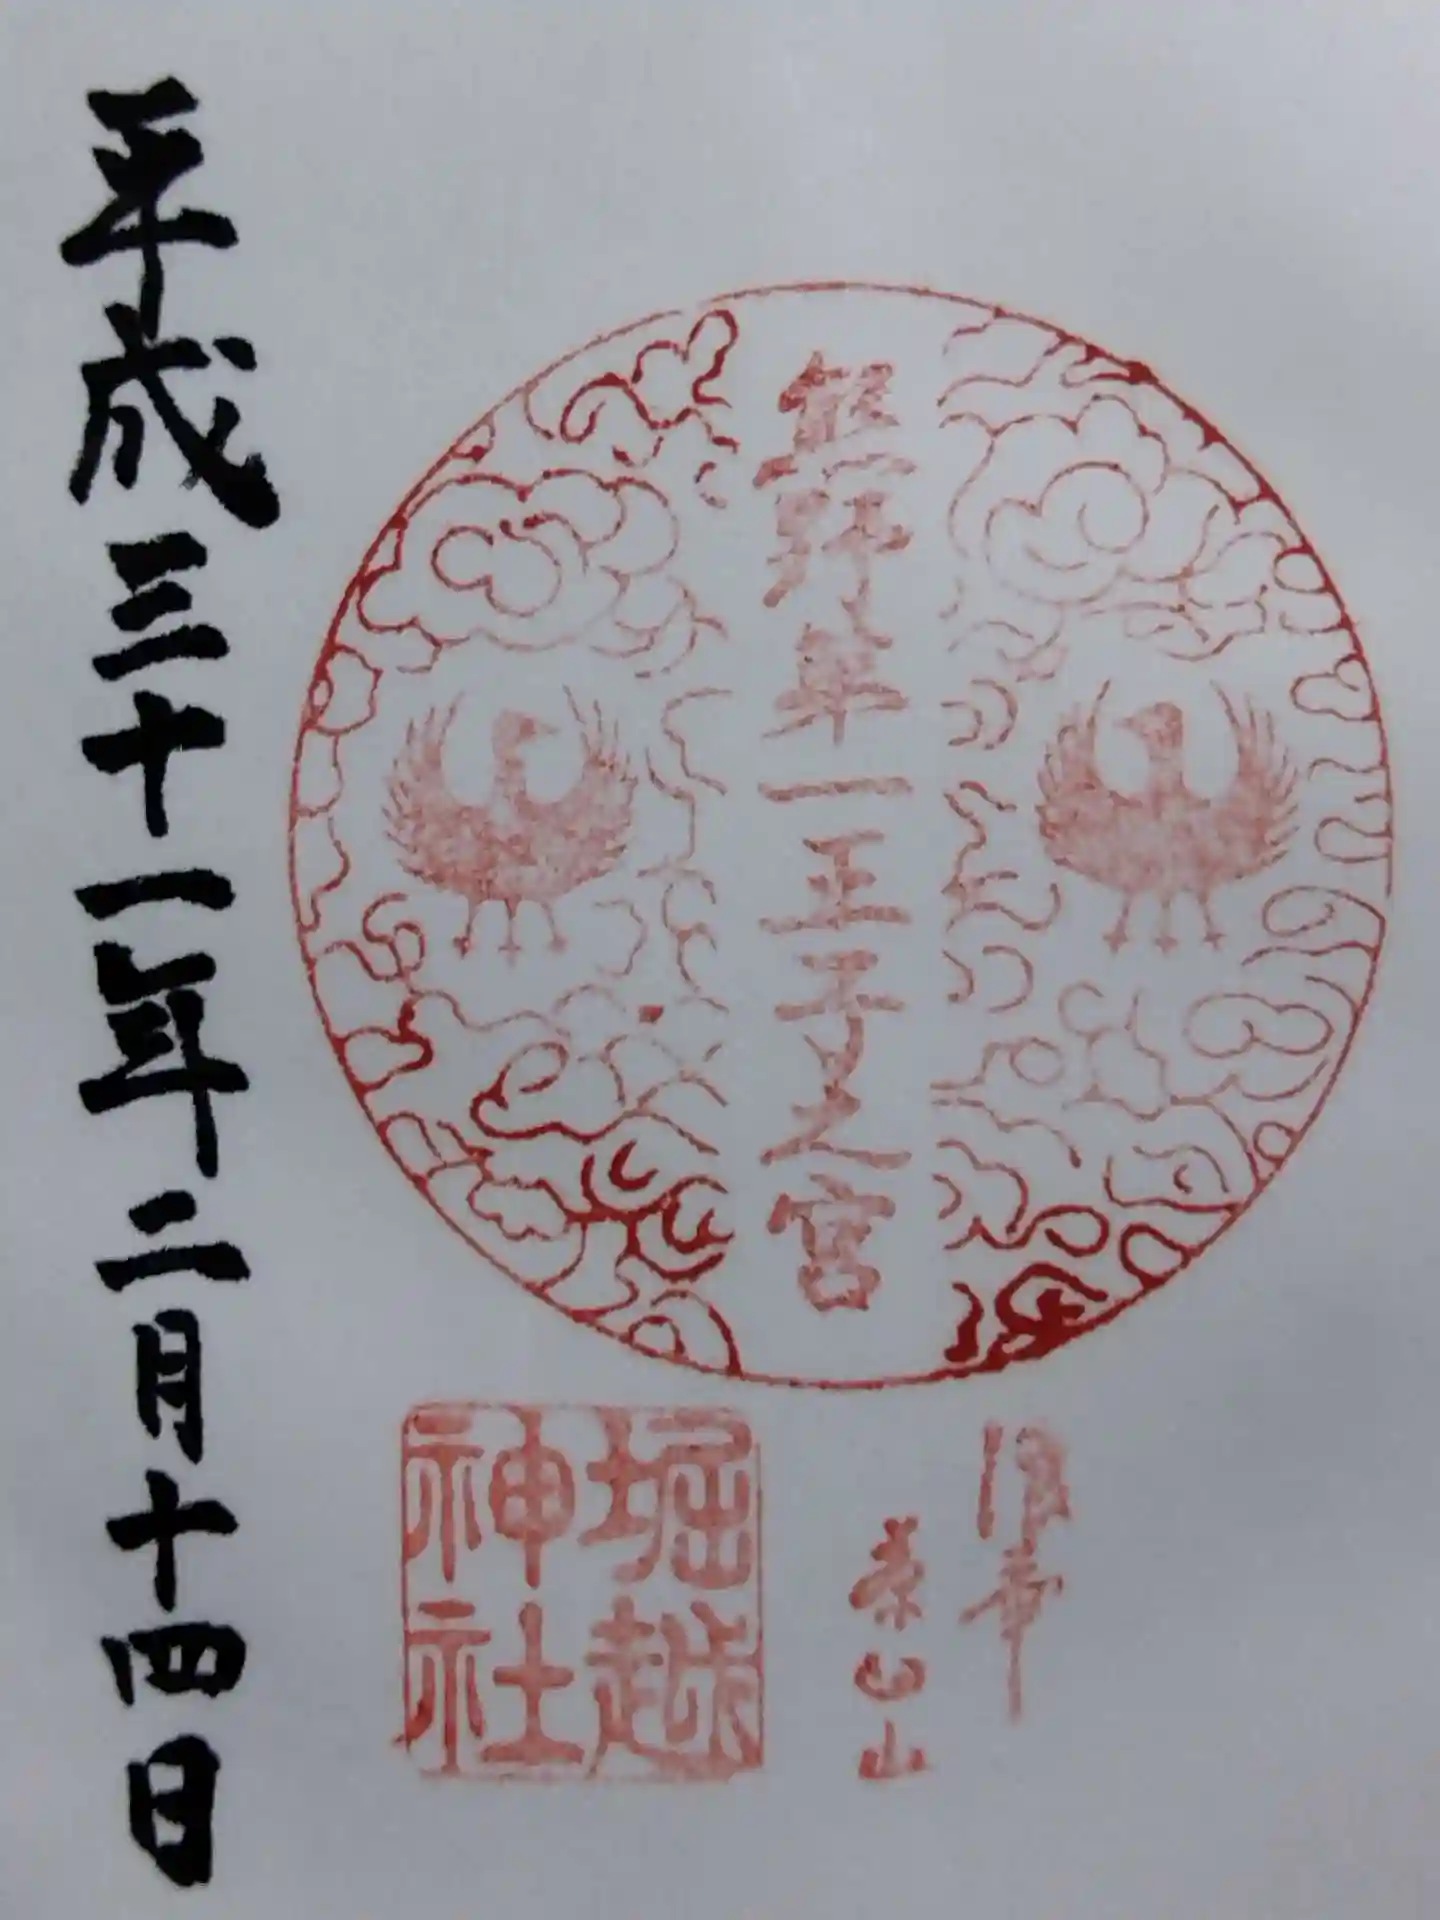 熊野第一王子之宮
浪華
茶臼山
堀越
神社
平成三十一年二月十四日